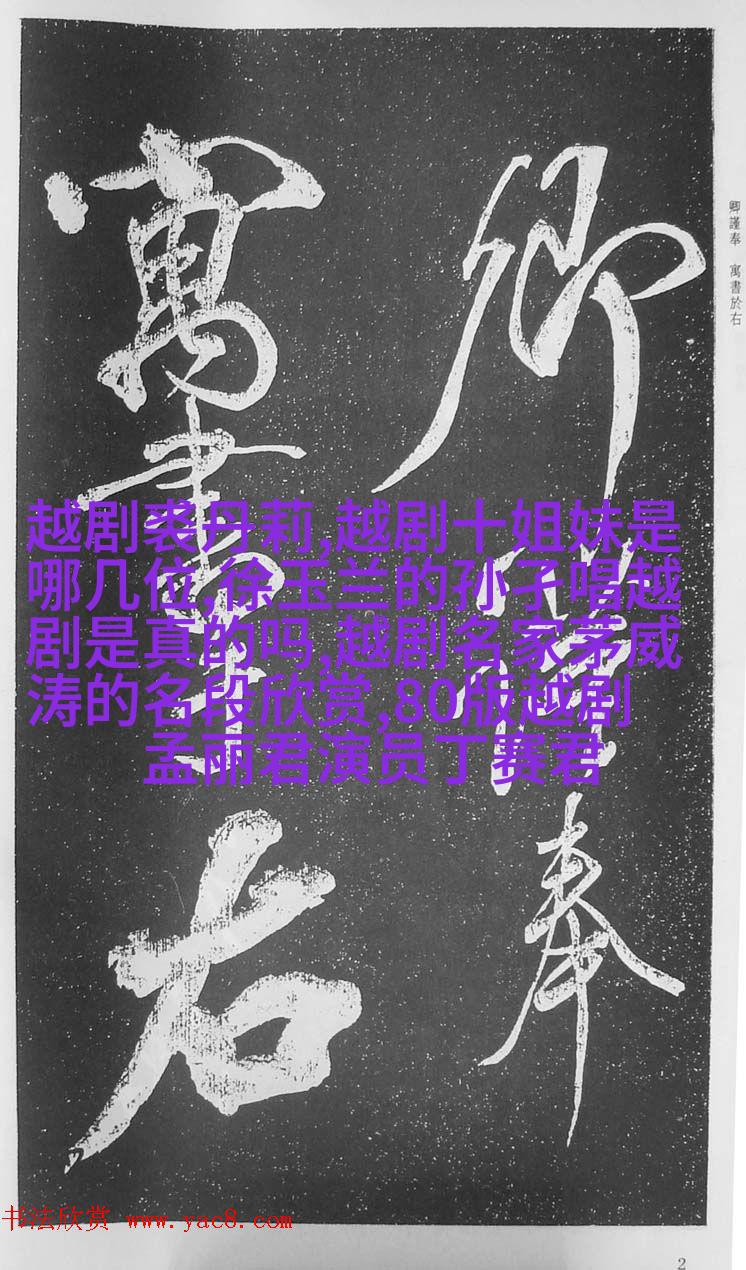 卿謹奉
寓書右
卿謹奉 寓書於右
越剧裘丹莉,越剧十姐妹是
哪几位,徐玉兰的孙子唱越
剧是真的吗,越剧名家茅威
涛的名段欣赏,80版越剧
孟丽君演员丁赛君
书法欣赏 www.yac8.com
2